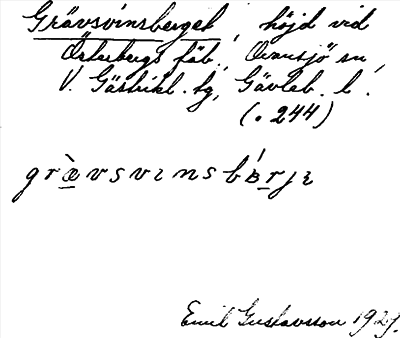 Grävsvinsberget, höjd vid
Österbergs fäb., Ovansjö sn,
V. Gästrikl. tg, Gävleb. l.
(• 244)
græ̀vsvɩnsbʙ́rjɩ
Emil Gustavsson 1927.